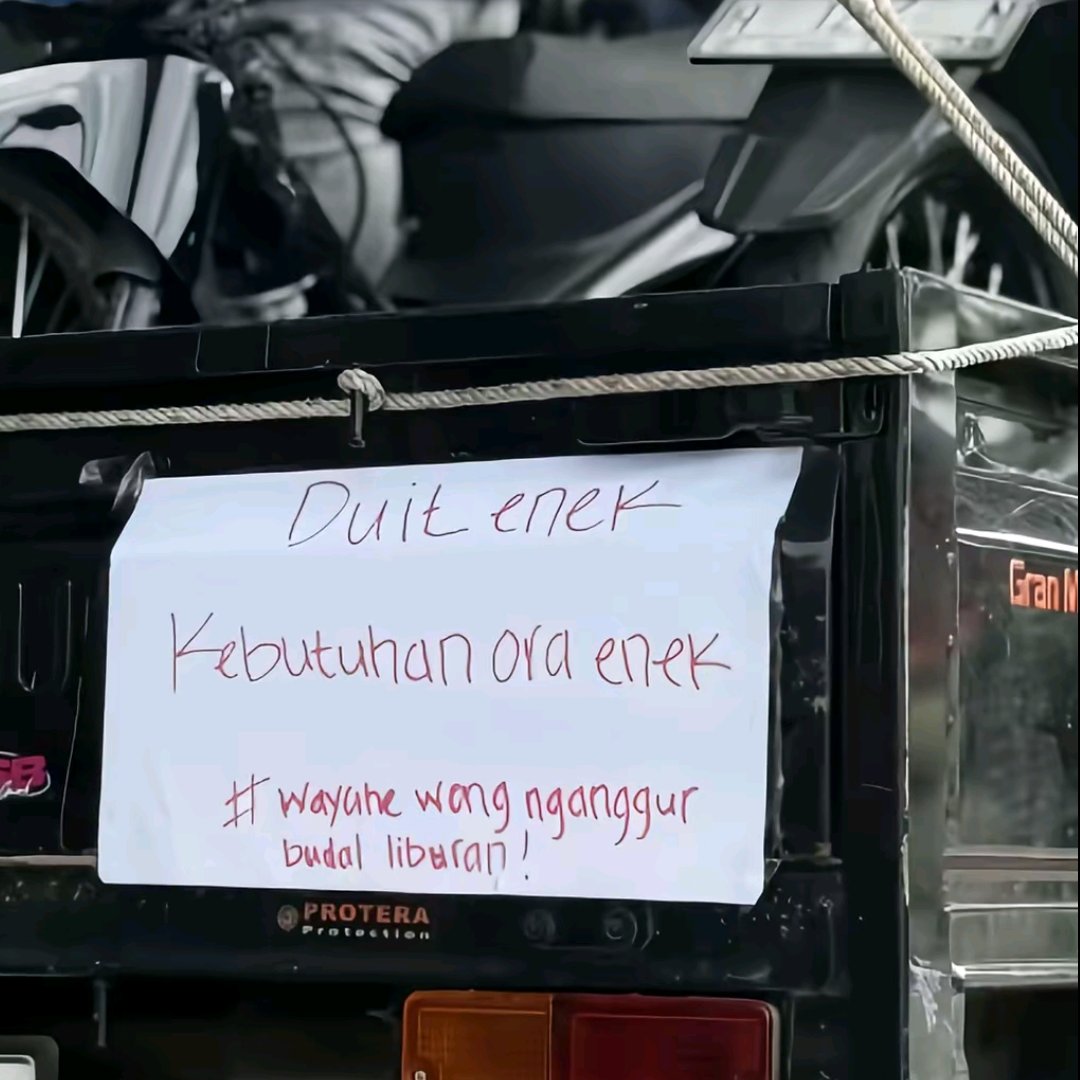 Duit enek
Kebutuhan ora enek
# wayahe wong nganggur
budal liburan!
PROTERA
Protection
Gran